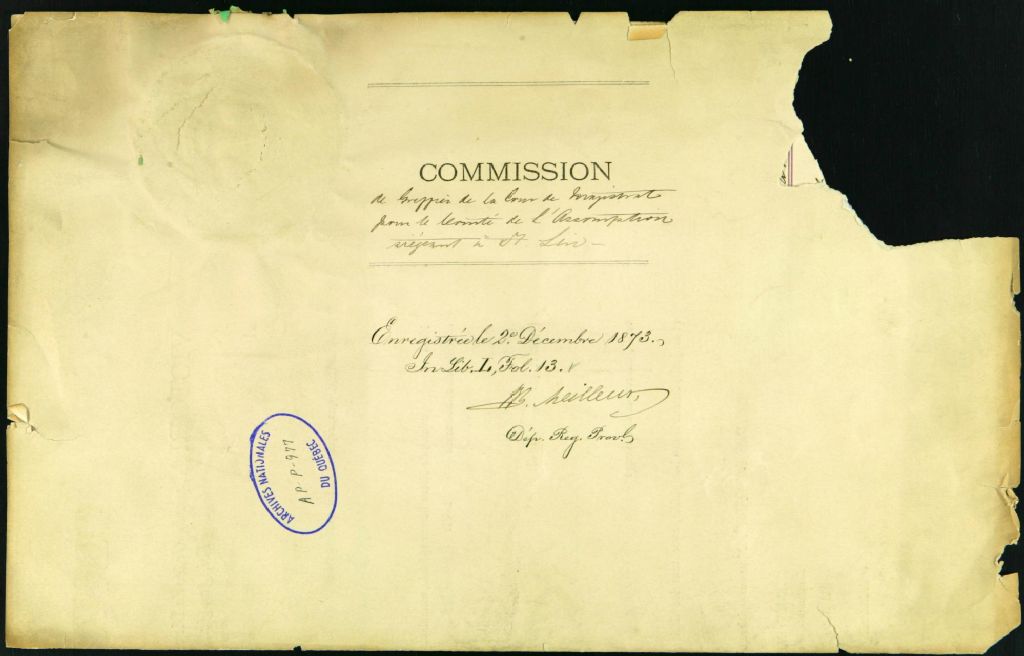 COMMISSION
de Greffier de la Cour de Magistrat
pour le Comté de l'Assomption
siégeant à St Lin -
Enregistrée le 2e Décembre 1873.
In Lib. L, Fol. 13.
Meilleur
Dép. Reg. Provl.
ARCHIVES NATIONALES
AP-P-977
DU QUÉBEC